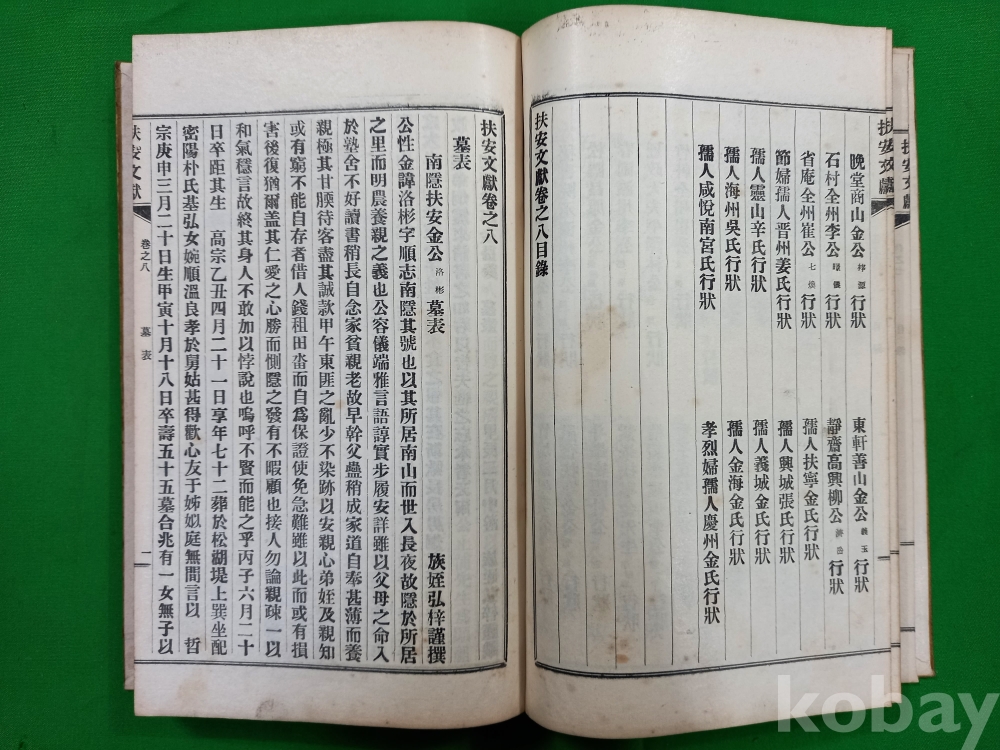 扶安文獻
扶安文獻
晩堂商山金公 行狀
東軒善山金公 行狀
石村全州李公 行狀
靜齋高興柳公 行狀
省庵全州崔公 行狀
孺人扶寧金氏行狀
節婦孺人晋州姜氏行狀
孺人興城張氏行狀
孺人靈山辛氏行狀
孺人義城金氏行狀
孺人海州吳氏行狀
孺人金海金氏行狀
孺人咸悅南宮氏行狀
孝烈婦孺人慶州金氏行狀
扶安文獻卷之八目錄
扶安文獻卷之八
墓表
南隱扶安金公洛彬墓表
族姪弘梓謹撰
公性金諱洛彬字順志南隱其號也以其所居南山而世入長夜故隱於所居
之里而明農養親之義也公容儀端雅言語諄實步履安詳雖以父母之命入
於塾舍不好讀書稍長自念家貧親老故早幹父蠱稍成家道自奉甚薄而養
親極其甘腝待客盡其誠款甲午東匪之亂少不染跡以安親心弟姪及親知
或有窮不能自存者借人錢租田畓而自爲保證使免急難雖以此而或有損
害後復猶爾盖其仁愛之心勝而惻隱之發有不暇顧也接人勿論親疎一以
和氣穩言故終其身人不敢加以悖說也嗚呼不賢而能之乎丙子六月二十
日卒距其生 高宗乙丑四月二十一日享年七十二葬於松湖堤上巽坐配
密陽朴氏基弘女婉順溫良孝於舅姑甚得歡心友于姊姒庭無間言以 哲
宗庚申三月二十日生甲寅十月十八日卒壽五十五墓合兆有一女無子以
扶安文獻
卷之八
墓表
一
kobay